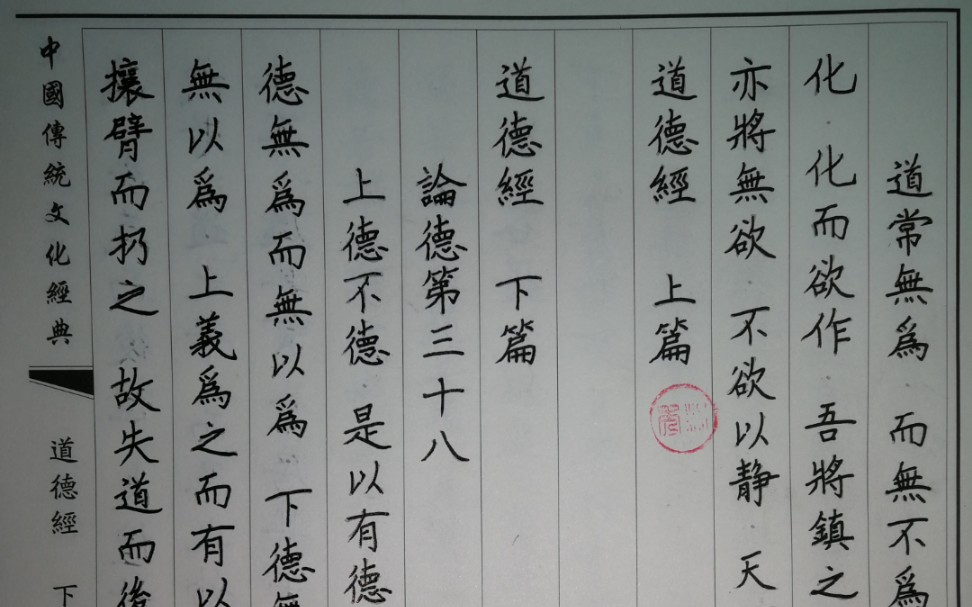 道常無為 而無不為
化 化而欲作 吾將鎮之
亦將無欲 不欲以静 天
道德經 上篇
道德經 下篇
論德第三十八
上德不德 是以有德
德無為而無以為 下德無
無以為 上義為之而有以
攘臂而扔之 故失道而後
中國傳統文化經典
道德經 下